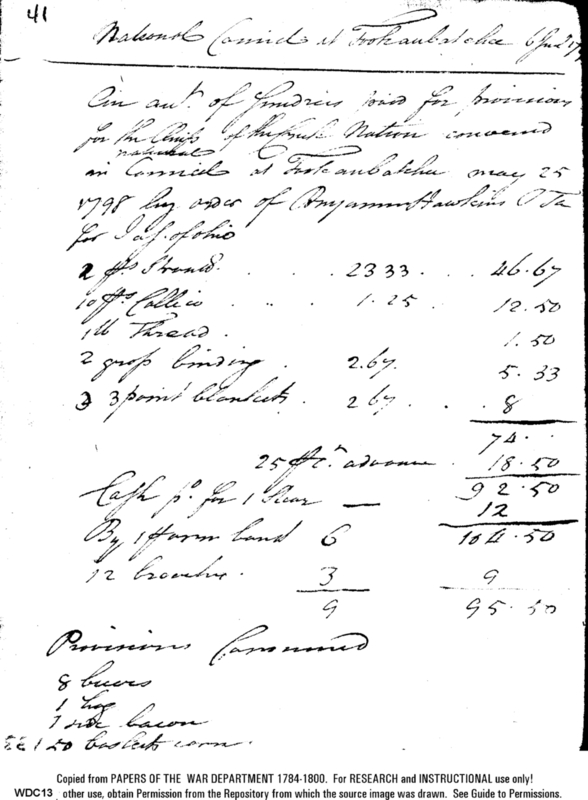 41
National Council at Tookaubatchee 6 June 179
An aut. of Sundries paid for provisions
for the Chiefs of the Creek Nation convened
national
in Council at Tookaubatchee may 25
1798 by order of Benjamin Hawkins P T a
for I af. of ohio
2 ps Stroud . . . 23 33 . . 46.67
10 ps Callico . . 1.25 . . 12.50
1 lb Thread . 1.50
2 gross binding . 2.67. 5.33
3 3 point blankets . 2 67 . . . 8
74 . .
25 ct. advance . 18.50
92.50
Cash pd. for 1 Steer — 12
By 1 arm band 6 104.50
12 broaches . 3 9
9 95.50
Provisions Consumed
8 beeves
1 hog
1 side bacon
150 baskets corn .
Copied from PAPERS OF THE WAR DEPARTMENT 1784-1800. For RESEARCH and INSTRUCTIONAL use only!
WDC13 other use, obtain Permission from the Repository from which the source image was drawn. See Guide to Permissions.